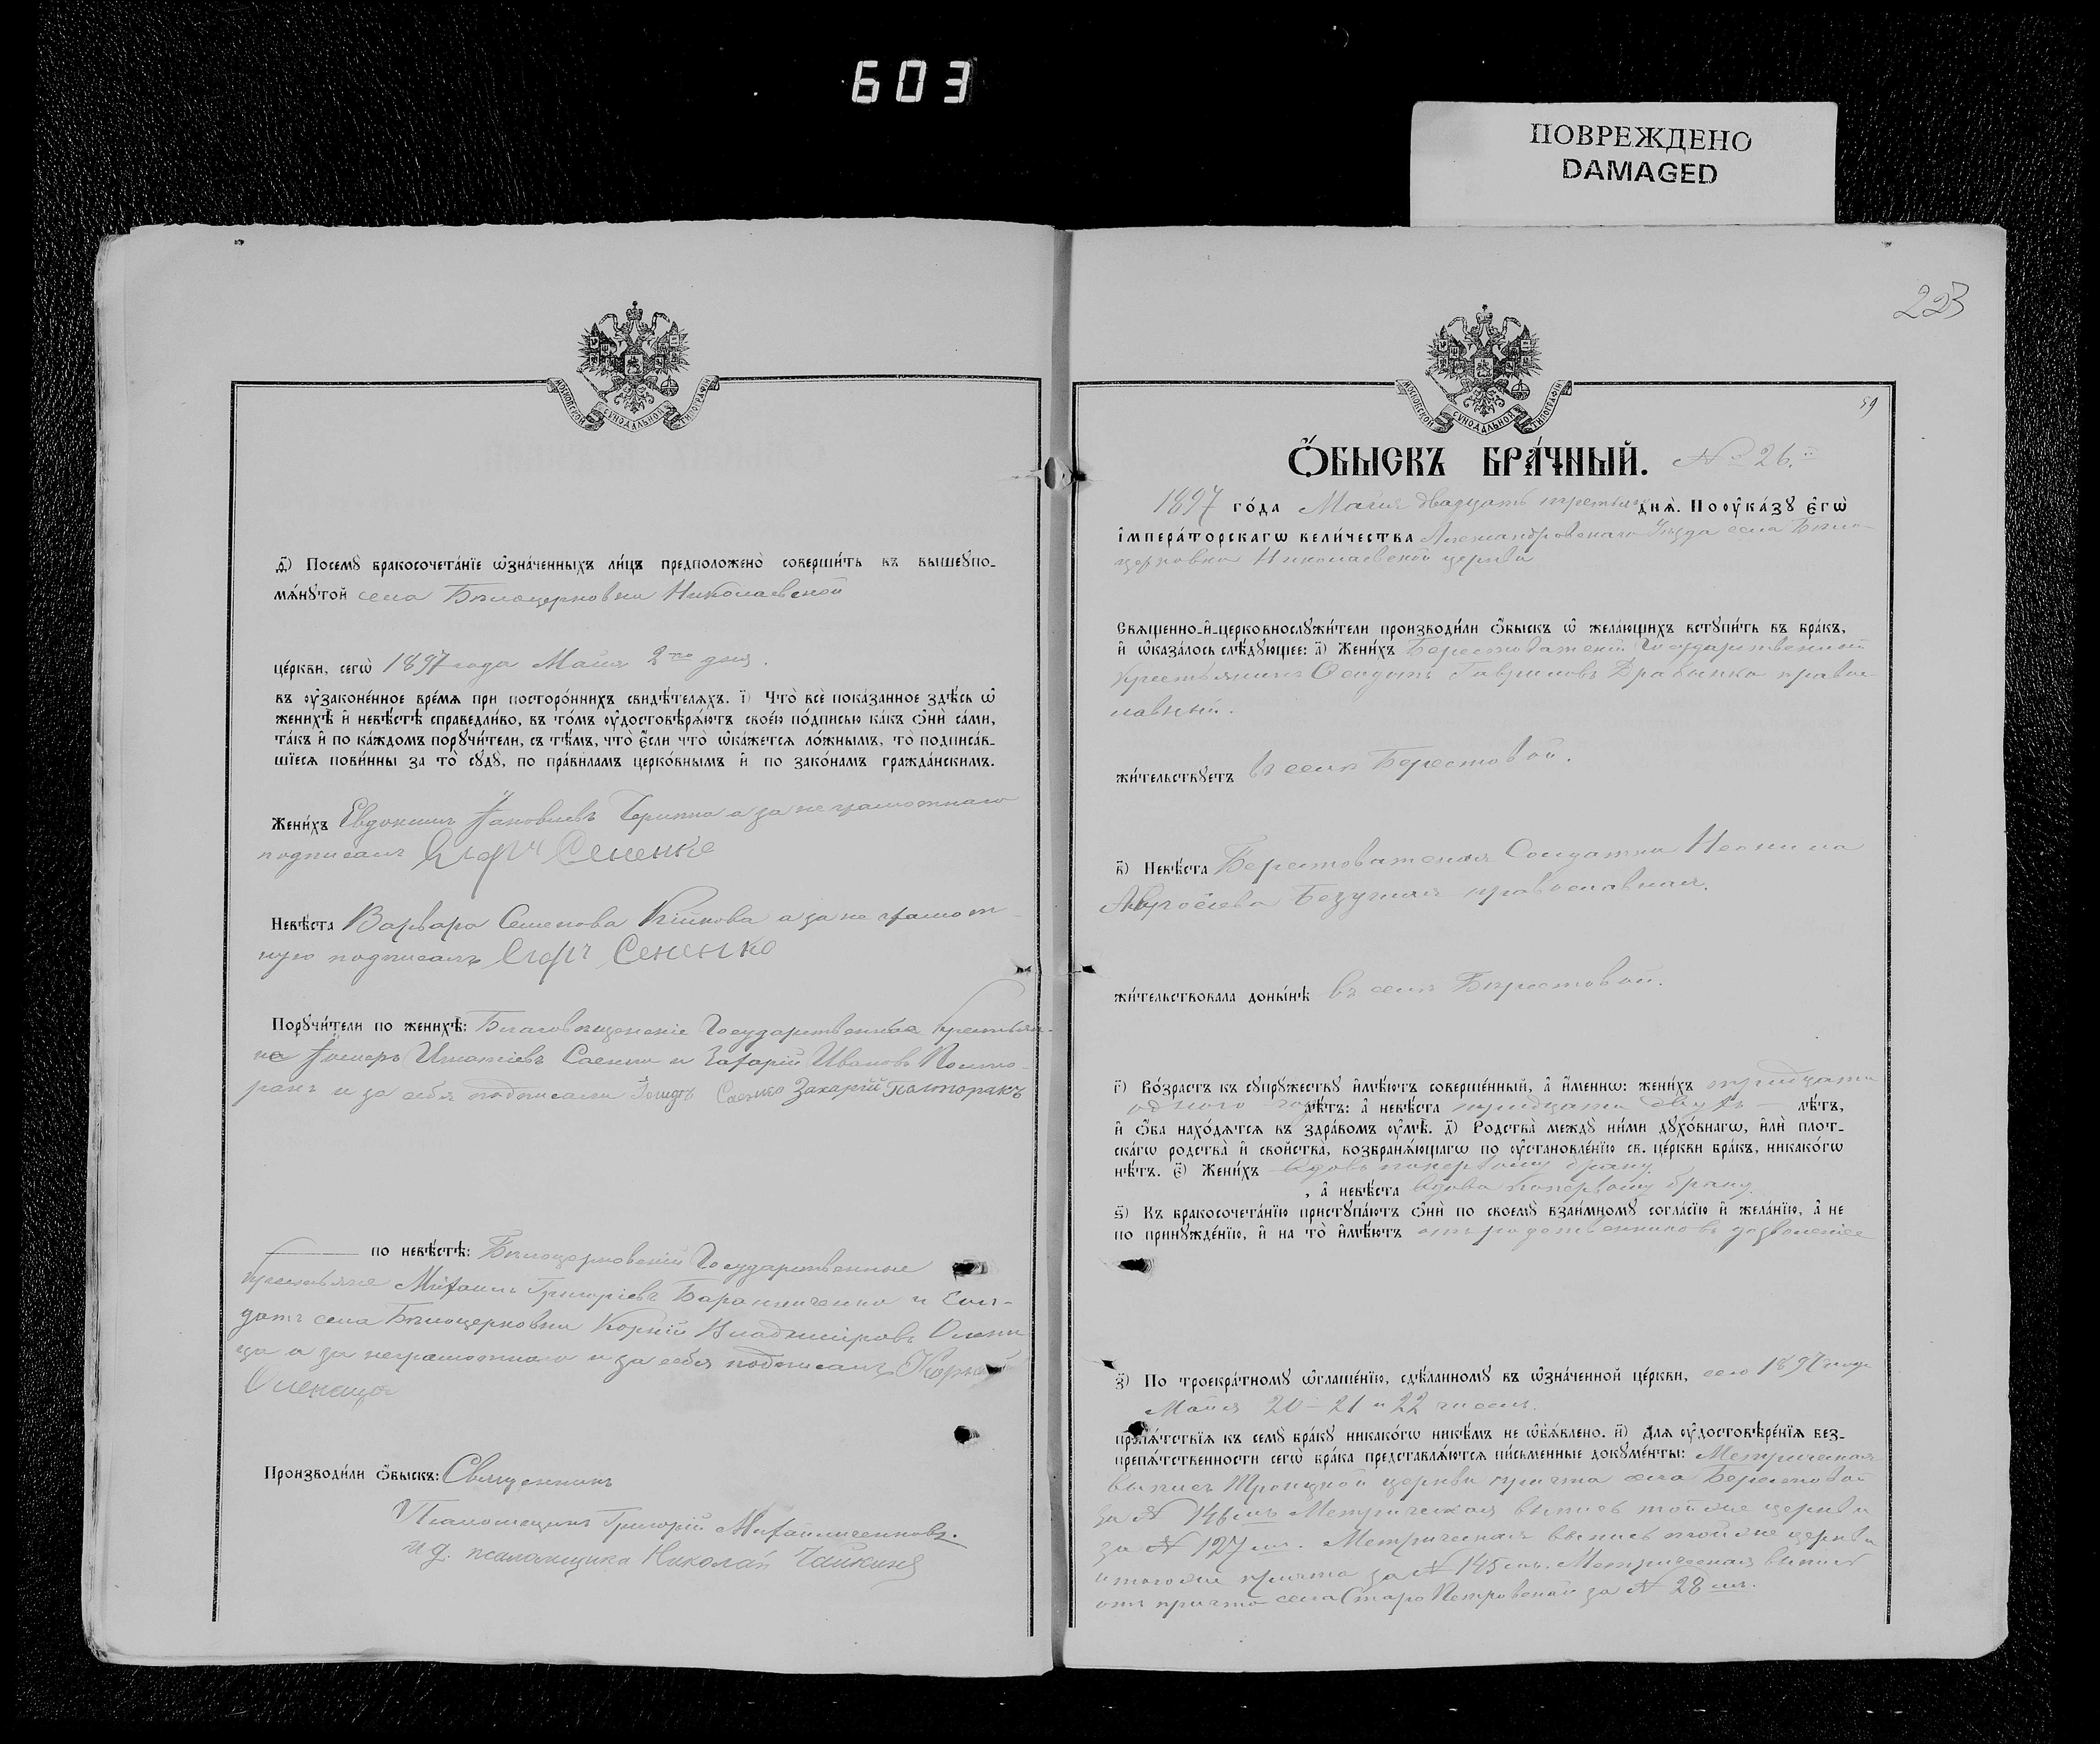 603
ПОВРЕЖДЕНО
DAMAGED
МОСКОВСКОЙ СѴНОДАЛЬНОЙ ТИПОГРАФІИ
ѳ҃) Посемꙋ̀ бракосочета́нїе ѡ҆зна́ченныхъ ли́цъ предположено̀ соверши́ть въ вышеꙋпо-
мѧ́нꙋтой села Бѣлоцерковки Николаевской
це́ркви, сегѡ̀ 1897 года Маія 2го дня.
въ ᲂу҆законе́нное вре́мѧ при посторо́ннихъ свидѣ́телѧхъ. і҃) Что̀ всѐ пока́занное здѣ́сь ѡ҆
женихѣ̀ и҆ невѣ́стѣ справедли́во, въ то́мъ ᲂу҆достовѣрѧ́ютъ свое́ю по́дписью ка́къ ѻ҆нѝ са́ми,
та́къ и҆ по ка́ждомъ порꙋчи́тели, съ тѣ́мъ, что̀ є҆́сли что̀ ѡ҆ка́жетсѧ ло́жнымъ, то̀ подписа́в-
шїесѧ пови́нны за то̀ сꙋдꙋ̀, по пра́виламъ церко́внымъ и҆ по зако́намъ гражда́нскимъ.
Жени́хъ Евдокимъ Іаковлевъ а за неграмотнаго
подписалъ Егоръ Сененко
Невѣ́ста Варвара Семенова а за не грамот
ную подписалъ Егоръ Сененко
Порꙋчи́тели по женихѣ̀: Благовѣщенскіе Государственные крестья-
не Игнатіевъ Саенко и Захарій Ивановъ Полто
ракъ и за себя подписали Саенко Захарій Палторакъ
по невѣ́стѣ: Бѣлоцерковскій Государственные
крестьяне Михаилъ Григоріевъ Баранниченко и Сол-
датъ села Бѣлоцерковки Корній Владиміровъ Олени
ца а за неграмотнаго и за себя подписалъ Корній
Оленица
Производи́ли ѻ҆́быскъ: Священникъ
Псаломщикъ Григорій Михайличенковъ.
и д. псаломщика Николай Чайкинъ
223
59
МОСКОВСКОЙ СѴНОДАЛЬНОЙ ТИПОГРАФІИ
Ѻ҆́БЫСКЪ БРА́ЧНЫЙ. № 26.й
1897 го́да Маія двадцать третьяго днѧ̀. По ᲂу҆ка́зꙋ є҆гѡ̀
і҆мпера́торскагѡ вели́чества Александровскаго Уѣзда села Бѣло-
церковки Николаевской церкви
Свѧщенно-и҆-церковнослꙋжи́тели производи́ли ѻ҆́быскъ ѡ҆ жела́ющихъ встꙋпи́ть въ бра́къ,
и҆ ѡ҆каза́лось слѣ́дꙋющее: а҃) Жени́хъ Берестоватскій Государственный
крестьянинъ Гавриловъ Драбынка правос-
лавный.
жи́тельствꙋетъ въ селѣ Берестовой.
в҃) Невѣ́ста Берестоватская Солдатка Неонила
Безумная православная.
жи́тельствовала доны́нѣ въ селѣ Берестовой.
г҃) Во́зрастъ къ сꙋпрꙋ́жествꙋ и҆мѣ́ютъ соверше́нный, а҆ и҆́менно: жени́хъ тридцати
одного года лѣ́тъ: а҆ невѣ́ста тридцати двухъ — лѣ́тъ,
и҆ ѻ҆́ба нахо́дѧтсѧ въ здра́вомъ ᲂу҆мѣ̀. д҃) Родства̀ междꙋ̀ ни́ми дꙋхо́внагѡ, и҆лѝ плот-
ска́гѡ родства̀ и҆ сво́йства, возбранѧ́ющагѡ по ᲂу҆становле́нїю св. це́ркви бра́къ, никако́гѡ
нѣ́тъ. є҃) Жени́хъ вдовъ поперьвому браку.
, а҆ невѣ́ста вдова поперьвому браку.
ѕ҃) Къ бракосочета́нїю пристꙋпа́ютъ ѻ҆нѝ по своемꙋ̀ взаи́мномꙋ согла́сїю и҆ жела́нїю, а҆ не
по принꙋжде́нїю, и҆ на то̀ и҆мѣ́ютъ отъ родственниковъ дозволеніе
з҃) По троекра́тномꙋ ѡ҆глаше́нїю, сдѣ́ланномꙋ въ ѡ҆зна́ченной це́ркви, сего 1897 года
Маія 20 - 21 и 22 числъ.
препѧ́тствїѧ къ семꙋ̀ бра́кꙋ никако́гѡ никѣ́мъ не ѡ҆б̾ѧ́влено. и҃) Длѧ ᲂу҆достовѣре́нїѧ без-
препѧ́тственности сегѡ̀ бра́ка представлѧ́ютсѧ пи́сьменные докꙋме́нты: Метрическая
выпись Троицкой церкви причта села Берестовой
за № 146 мъ Метрическая выпись тойже церкви
за № 127 мъ. Метрическая выпись тойже церкви
и тогоже причта за № 145 мъ. Метрическая выпись
отъ причта села Старо Петровской за № 28 мъ.